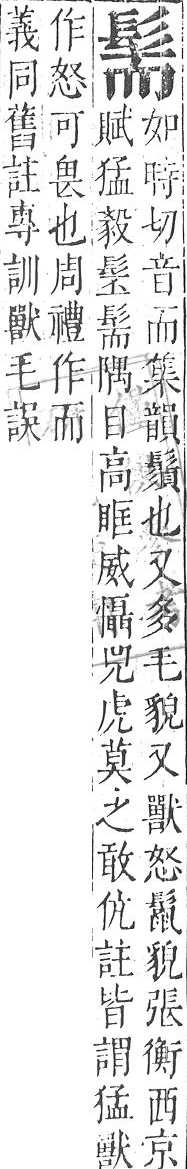 髵
如時切音而集韻鬚也又多毛貌又獸怒鬣貌張衡西京
賦猛毅髬髵隅目高眶威懾兕虎莫之敢伉註皆謂猛獸
作怒可畏也周禮作而
義同舊註專訓獸毛誤